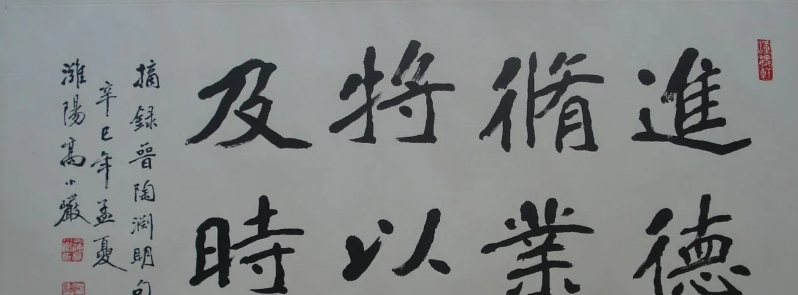 進德
脩業
將以
及時
摘録晉陶淵明句
辛巳年孟夏
濰陽高小巖